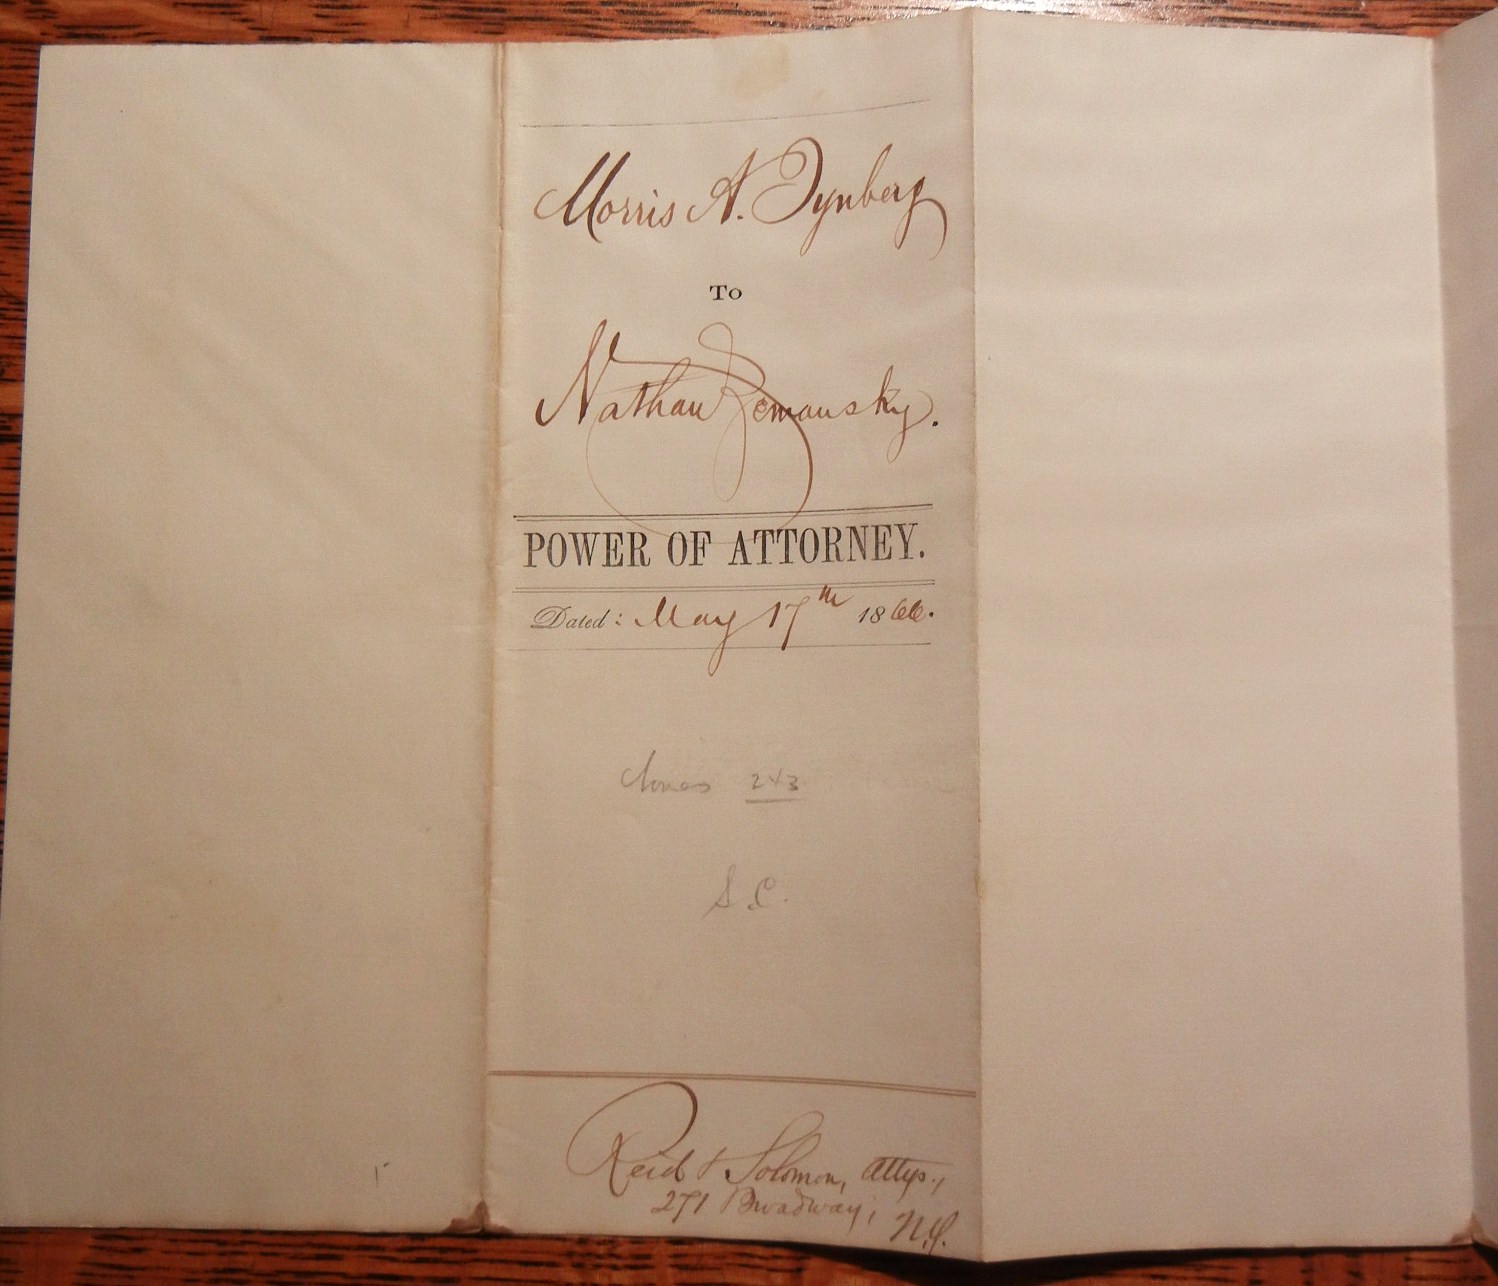 Morris A. Tynberg
To
Nathan Zemansky.
POWER OF ATTORNEY.
Dated: May 17th 1866.
243
S.C.
Reid & Solomon, attys.,
271 Broadway;
N.Y.